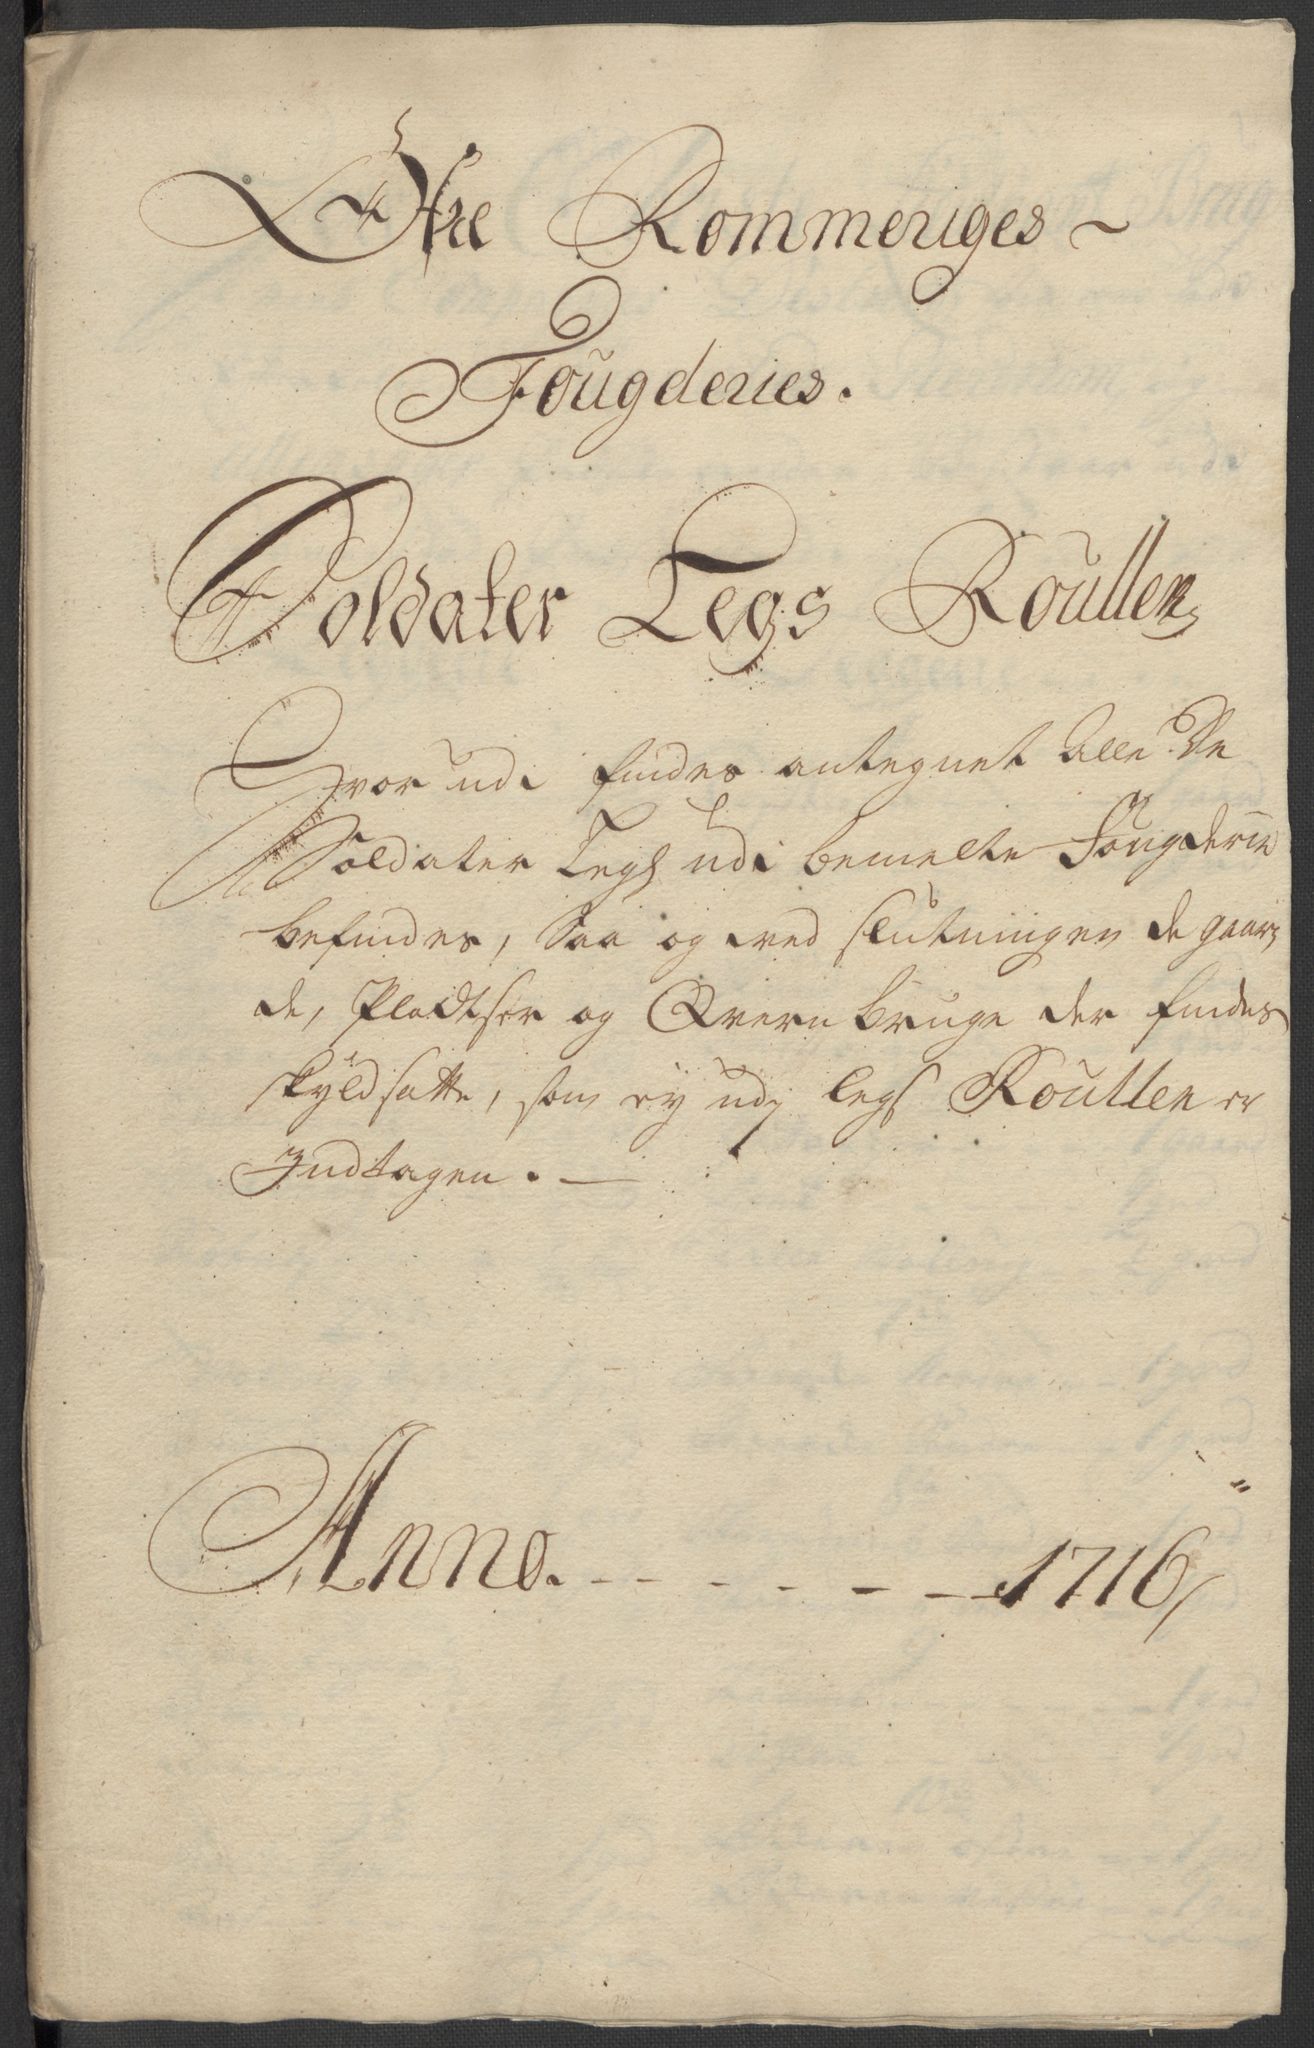 Øfre Rommeriges ~
Fougderies.
Soldater Legs Roullen
Hvor udi findes antegnet Alle De
Soldater Legs udi bemelte Fougderie
befindes, Saa og ved slutningen de gaar,
de, Pladtser og Qvern bruge der findes
skyldsatte, som ey udj legs Roullen er
Indtagen. —
Anno. - - - - - - - 1716,